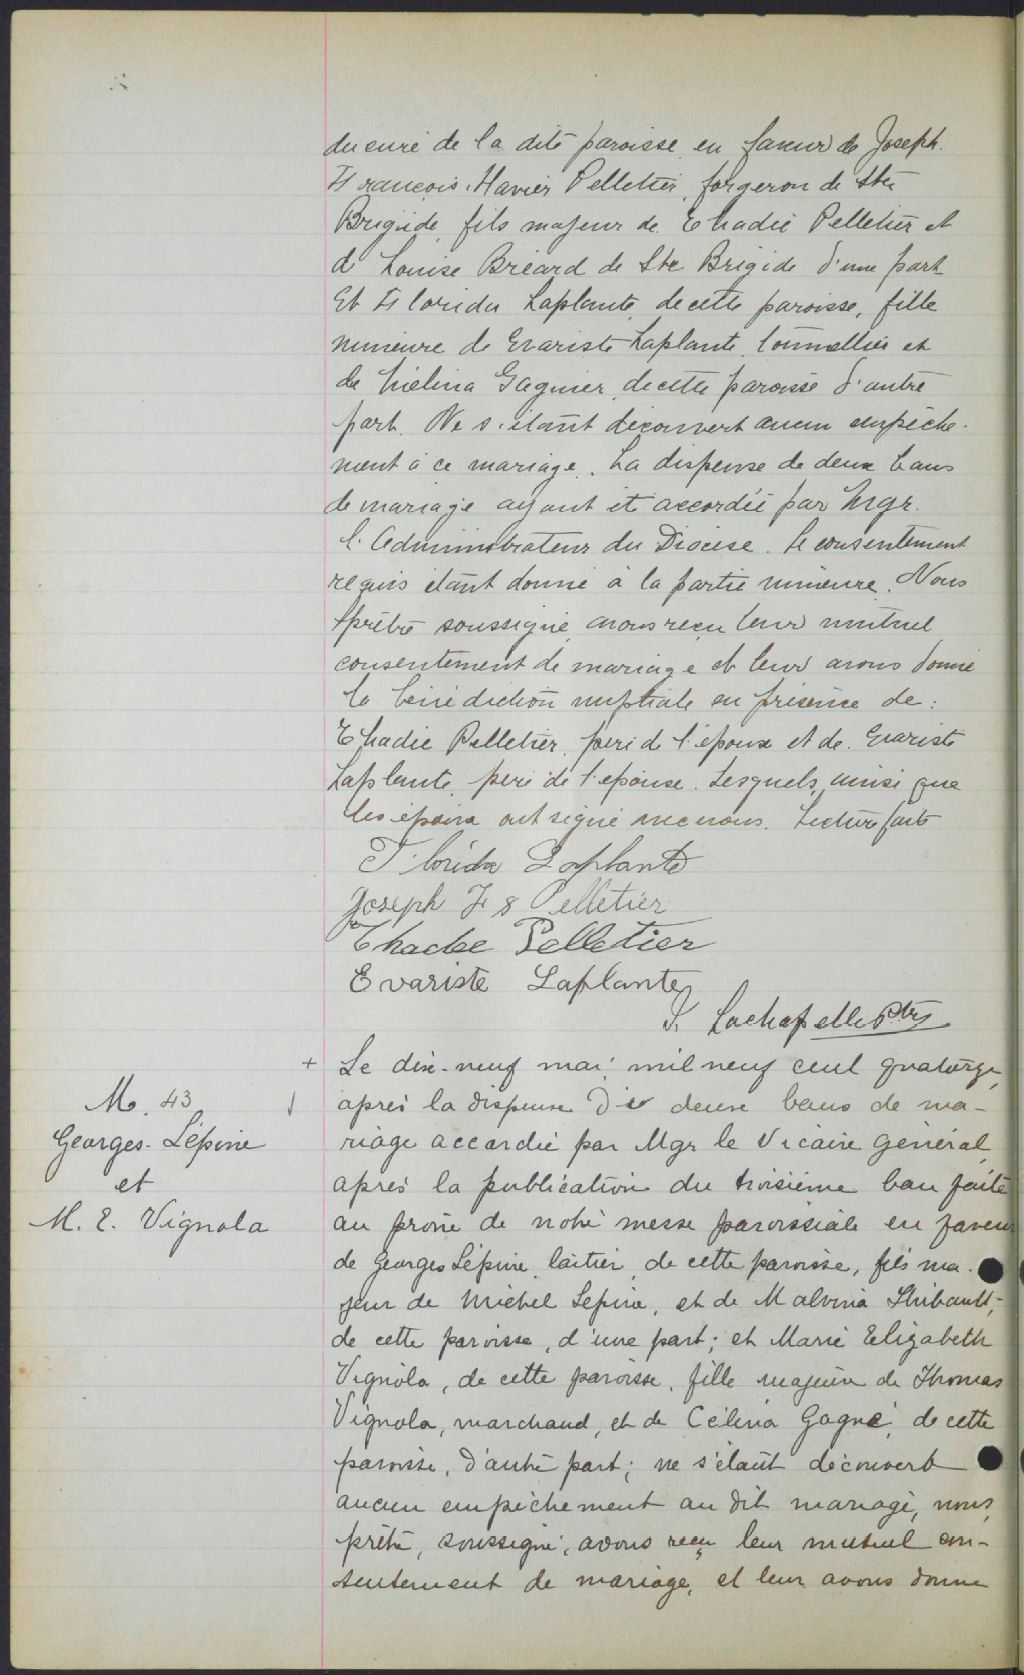 du curé de la dite paroisse en faveur de Joseph
François-Xavier Pelletier, forgeron de Ste
Brigide, fils majeur de Thadée Pelletier et
d Louise Bréard de Ste Brigide d'une part
Et Florida Laplante, de cette paroisse, fille
mineure de Evariste Laplante, tonnellier et
de Mélina Gagnier, de cette paroisse d'autre
part. Ne s'étant découvert aucun empêche-
ment à ce mariage. La dispense de deux bans
de mariage ayant été accordée par Mgr.
l'Administrateur du Diocèse. Le consentement
requis étant donné à la partie mineure. Nous
prêtre soussigné avons reçu leur mutuel
consentement de mariage et leur avons donné
la bénédiction nuptiale en présence de:
Thadée Pelletier, père de l'époux et de Evariste
Laplante, père de l'épouse. Lesquels, ainsi que
les époux ont signé avec nous. Lecture faite
Florida Laplante
Joseph F X Pelletier
Thadée Pelletier
Evariste Laplante
Lachapelle Ptre
M. 43
Georges Lépine
et
M. E. Vignola
+ Le dix-neuf mai mil neuf cent quatorze,
après la dispense de deux bans de ma-
riage accordée par Mgr le Vicaire général,
après la publication du troisième ban faite
au prône de notre messe paroissiale en faveur
de Georges Lépine laitier de cette paroisse, fils ma-
jeur de Michel Lépine, et de Malvina Thibault,
de cette paroisse, d'une part; et Marie Elizabeth
Vignola, de cette paroisse, fille majeure de Thomas
Vignola, marchand, et de Célina Gagné, de cette
paroisse, d'autre part; ne s'étant découvert
aucun empêchement au dit mariage, nous,
prêtre, soussigné, avons reçu leur mutuel con-
sentement de mariage, et leur avons donné